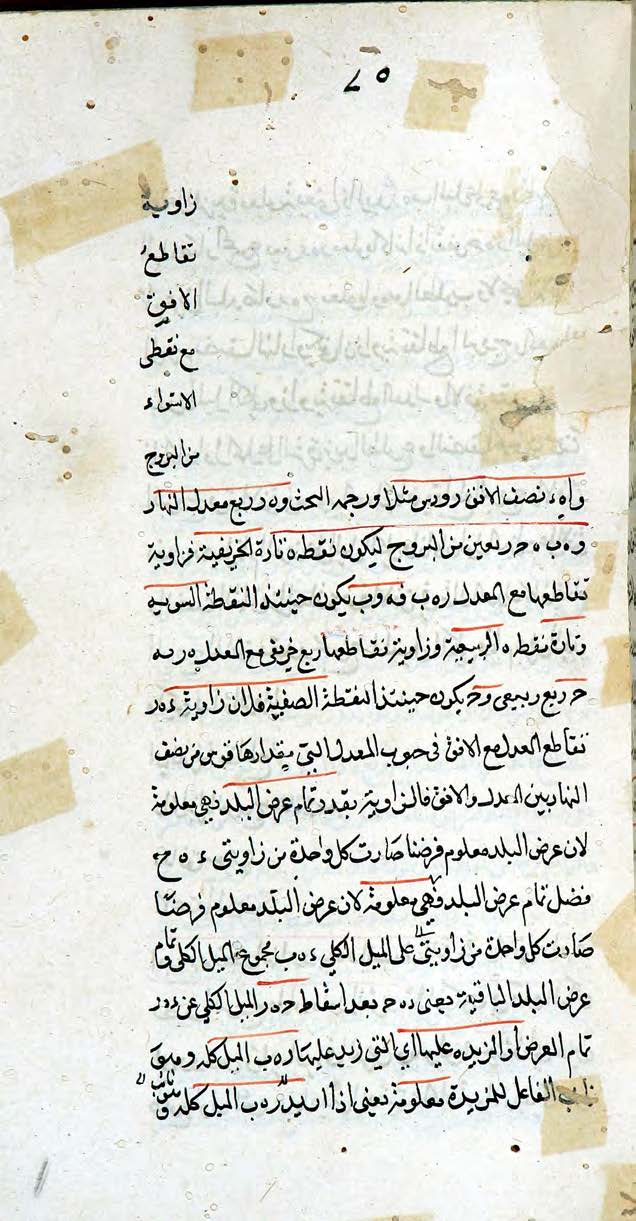 ٧٥
زاوية
تقاطع
الافق
مع نقطتى
الاستواء
من البروج
نصف الافق رودس مثلا ورجمه البحث وه ر ربع معدل النهار
وه ب ه ح ربعين من البروج ليكون نقطه ه تارة الخريفية فزاوية
تقاطعها مع المعدل ره ب فه وب يكون حينئذ النقطة
وتارة نقطه ه الربيعية وزاوية تقاطعها ربع خريفى مع المعدل
ح ربع ربيعى وح يكون حينئذ النقطة الصيفية فلان زاوية ء ه ر
تقاطع المعدل مع الافق فى جنوب المعدل التى مقدارها قوس من نصف
النهار بين المعدل والافق فالزاوية بقدر تمام عرض البلد فهى معلومة
لان عرض البلد معلوم فرضنا صارت كل واحدة من زاويتى ء ه ح
فضل تمام عرض البلد فهى معلومة لان عرض البلد معلوم فرضا
صارت كل واحدة من زاويتى على الميل الكلى ء ه ب مجموع الميل الكلى وتمام
عرض البلد الباقية يعنى ء ه ح بعد اسقاط ح ه ر الميل الكلى عن ء ه ر
تمام العرض او المزيده عليها اى التى زيد عليها ره ب الميل كله
الفاعل للمزيدة معلومة يعنى اذا ره ب الميل كله